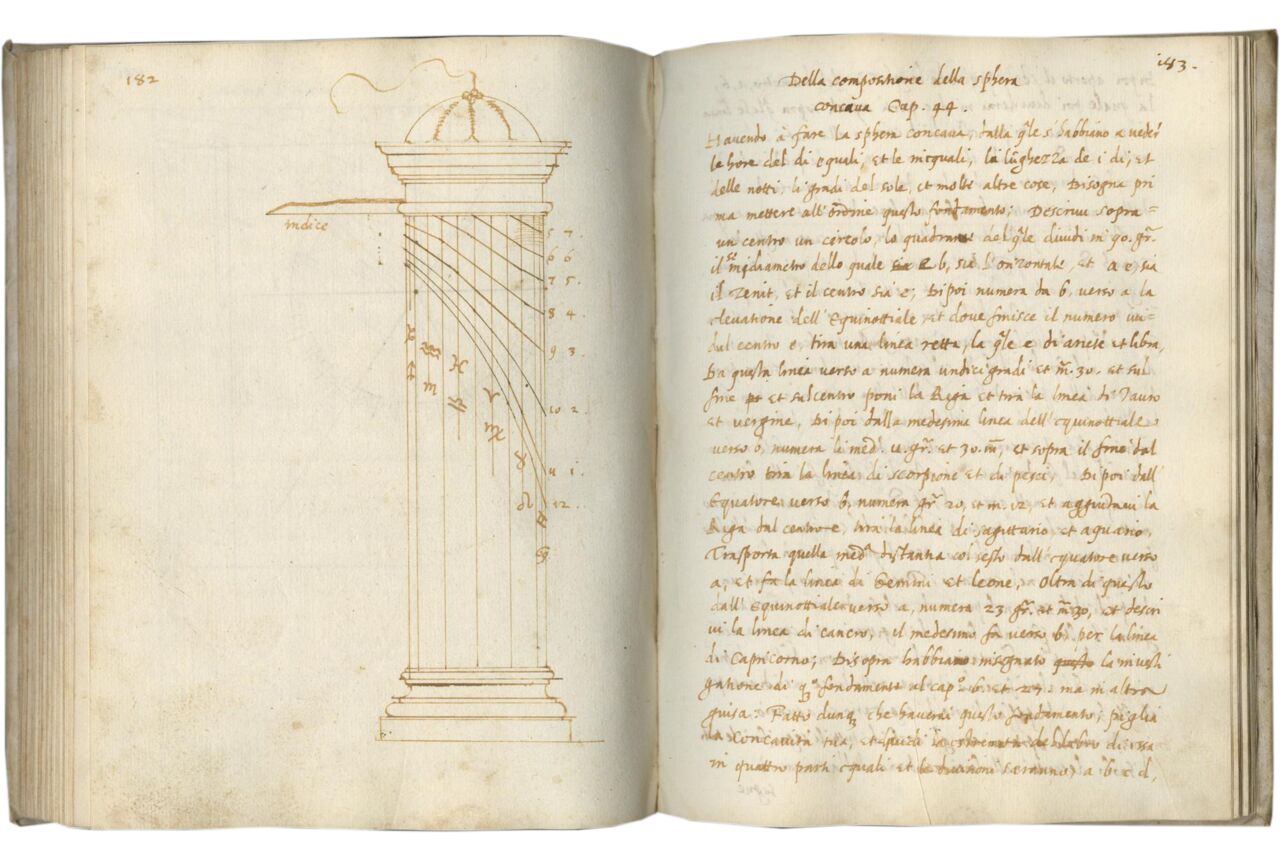 182
indice
5 7.
6 6
7 5.
8 4.
9 3
10 2.
11 1.
12.
♑
♐
♒
♏
♓
♎
♈
♍
♉
♌
♊
♋
183.
Della compositione della sphera
concava Cap. 44.
Havendo à fare la sphera concava, dalla q̃le s'habbiano a veder
le hore del di equali, et le inequali, la lũghezza de i di, et
delle notti, li gradi del sole, et molte altre cose, Bisogna pri
ma mettere all'ordine questo fondamento; Descrivi sopra =
un centro un circolo, lo quadrante del q̃le dividi in 90. gr̃.
il semidiametro dello quale e b, sia l'orizontale, et a e, sia
il Zenit, et il centro sia e; Di poi numera da b, verso a la
elevatione dell'Equinottiale, et dove finisce il numero
dal centro e, tira una linea retta, la q̃le e di ariete et libra,
Da questa linea verso a numera undici gradi et m̃. 30. et sul
fine et sul centro poni la Riga et tira la linea di Tauro
et vergine, Di poi dalla medesima linea dell'equinottiale
verso b, numera li med. 11. gr̃. et 30. m̃, et sopra il fine dal
centro tira la linea di scorpione et di pesci, Di poi dall'
Equatore verso b, numera gr̃ 20, et m. 12, et la
Riga dal centro e, tira la linea di sagittario et aquario,
Trasporta quella med.a distantia col sesto dall'equatore verso
a, et fa la linea di Gemini et leone, Oltra di questo
dall'Equinottiale verso a, numera 23 gr̃. et m̃ 30, et descri
vi la linea di cancro, il medesimo fa verso b, per la linea
di Capricorno; Di sopra habbiamo insegnato la investi
gatione di q.o fondamento al cap.o 6. et 27. ma in altra
guisa. Fatto dunq̃ che haverai questo fondamento, piglia
la concavita tua, et la di essa
in quattro parti equali et le divisioni saranno, a b c d,